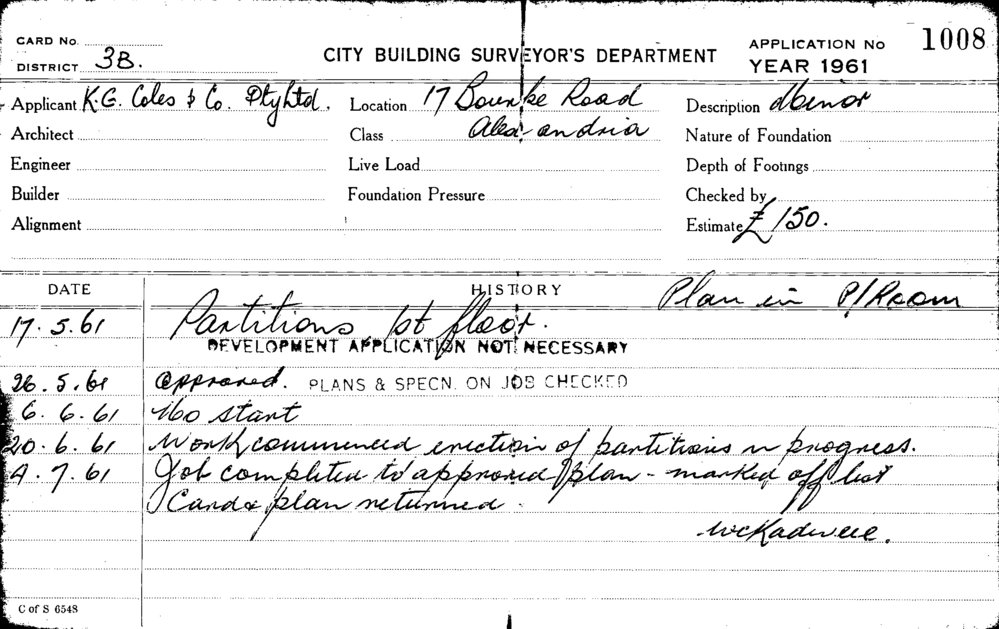 CARD No.
DISTRICT 3B.
CITY BUILDING SURVEYOR'S DEPARTMENT
APPLICATION No 1008
YEAR 1961
Applicant K.G. Coles & Co. Pty Ltd. Location 17 Bourke Road Description Minor
Architect Class Alexandria Nature of Foundation
Engineer Live Load Depth of Footings
Builder Foundation Pressure Checked by
Alignment Estimate £150.
DATE HISTORY Plan in P/Room
17.5.61 Partitions 1st floor.
DEVELOPMENT APPLICATION NOT NECESSARY
26.5.61 Approved. PLANS & SPECN. ON JOB CHECKED
6.6.61 No start
20.6.61 Work commenced erection of partitions in progress.
4.7.61 Job completed to approved plan - marked off list
Card & plan returned.
C of S 6548